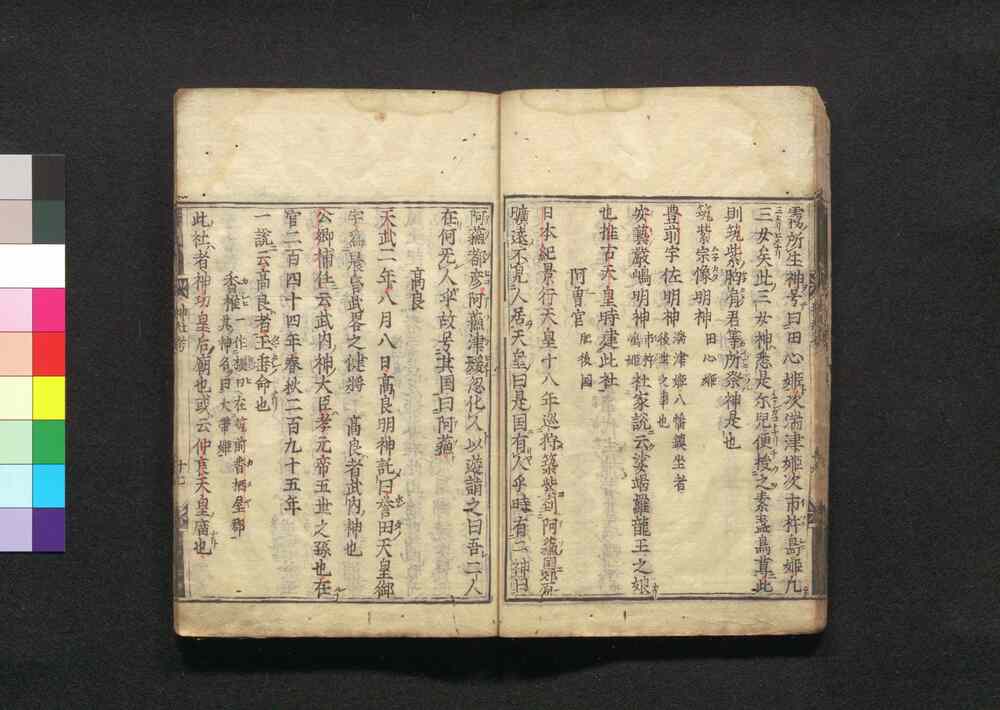 霧所生神号曰田心姫次湍津姫次市杵島姫凡
三女矣此三女神悉是尓児便授之素盞烏尊此
則筑紫胸肩君等所祭神是也
筑紫宗像明神 田心姫
豊前宇佐明神 湍津姫八幡鎮坐者後世之事也
安藝嚴嶋明神 市杵嶋姫 社家説云娑竭羅龍王之娘
也推古天皇時建此社
阿曽宮 肥後国
日本紀景行天皇十八年巡狩築紫到阿蘓国郊原
曠遠不見人居天皇曰是国有人乎時有二神曰
阿蘓都彦阿蘓津媛忽化人以遊詣之曰吾二人
在何无人乎故号其国曰阿蘓
高良
天武二年八月八日高良明神託曰誉田天皇御
宇為晨昏武畧之健将 高良者武内神也
公卿補任云武内神大臣孝元帝五世之孫也在
官二百四十四年春秋二百九十五年
一説云高良者玉垂命也
香椎 一作橿日在筑前香椎屋郡其神名曰大帯姫
此社者神功皇后廟也或云仲哀天皇廟也
神社考
十七